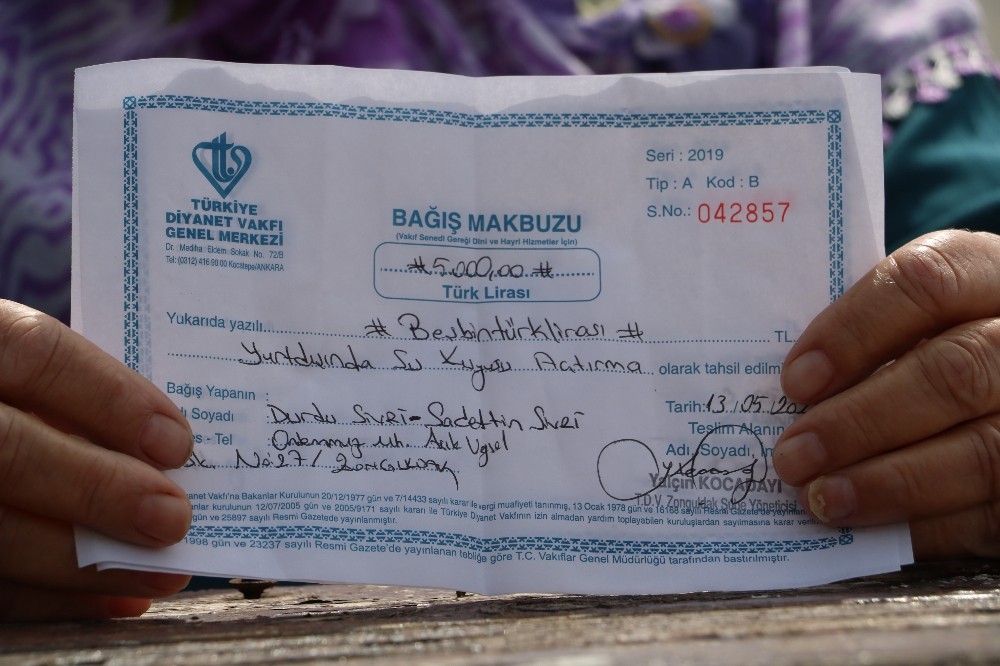 TÜRKİYE
DİYANET VAKFI
GENEL MERKEZİ
Dr. Mediha Eldem Sokak No. 72/B
Tel: (0312) 416 90 00 Kocatepe/ANKARA
Seri : 2019
Tip : A Kod : B
S.No.: 042857
BAĞIŞ MAKBUZU
(Vakıf Senedi Gereği Dini ve Hayri Hizmetler İçin)
# 5.000,00 #
Türk Lirası
Yukarıda yazılı # Beşbintürklirası # TL.
Yurtdışında Su Kuyusu Açtırma olarak tahsil edilmi
Bağış Yapanın :
ı Soyadı : Durdu Sivri - Sadettin Sivri
s - Tel :
No: 27/ ZONGULDAK
Tarih: 13/05/202
Teslim Alanın
Adı, Soyadı, İm
Yalçın KOCADAYI
T.D.V. Zonguldak Şube Yöneticisi
yanet Vakfı'na Bakanlar Kurulunun 20/12/1977 gün ve 7/14433 sayılı kararı ile vergi muafiyeti tanınmış, 13 Ocak 1978 gün ve 16168 sayılı Resmi Gazete'de yayın
anlar kurulunun 12/07/2005 gün ve 2005/9171 sayılı kararı ile Türkiye Diyanet Vakfının izin almadan yardım toplayabilen kuruluşlardan sayılmasına karar veri
gün ve 25897 sayılı Resmi Gazetede yayınlanmıştır.
1998 gün ve 23237 sayılı Resmi Gazete'de yayınlanan tebliğe göre T.C. Vakıflar Genel Müdürlüğü tarafından bastırılmıştır.